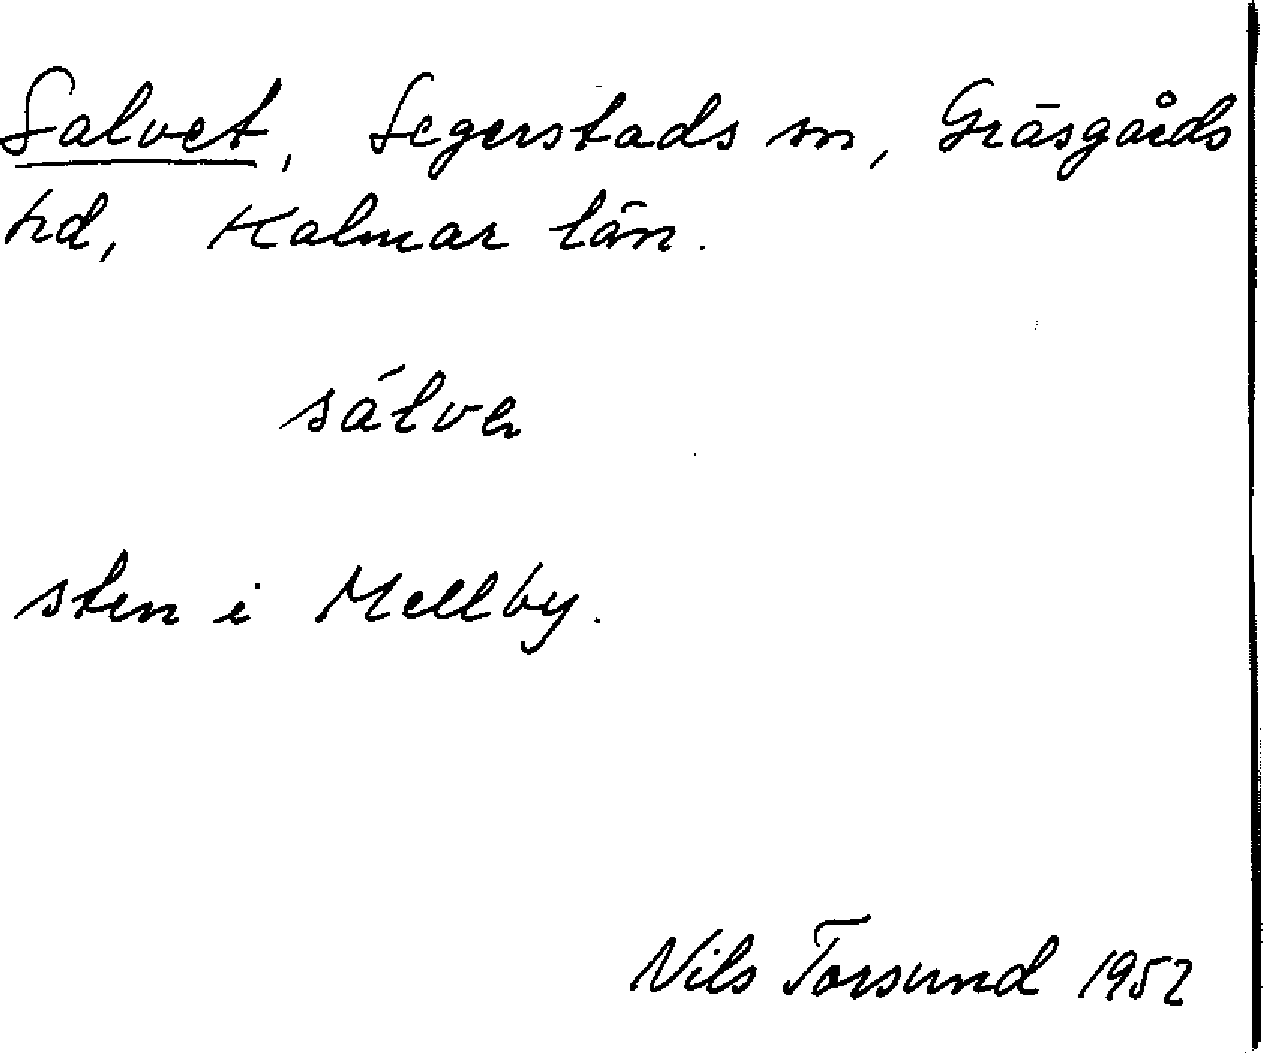 Salvet, Segerstads sn, Gräsgårds
hd, Kalmar län.
sálvə
sten i Mellby.
Nils Torsund 1952